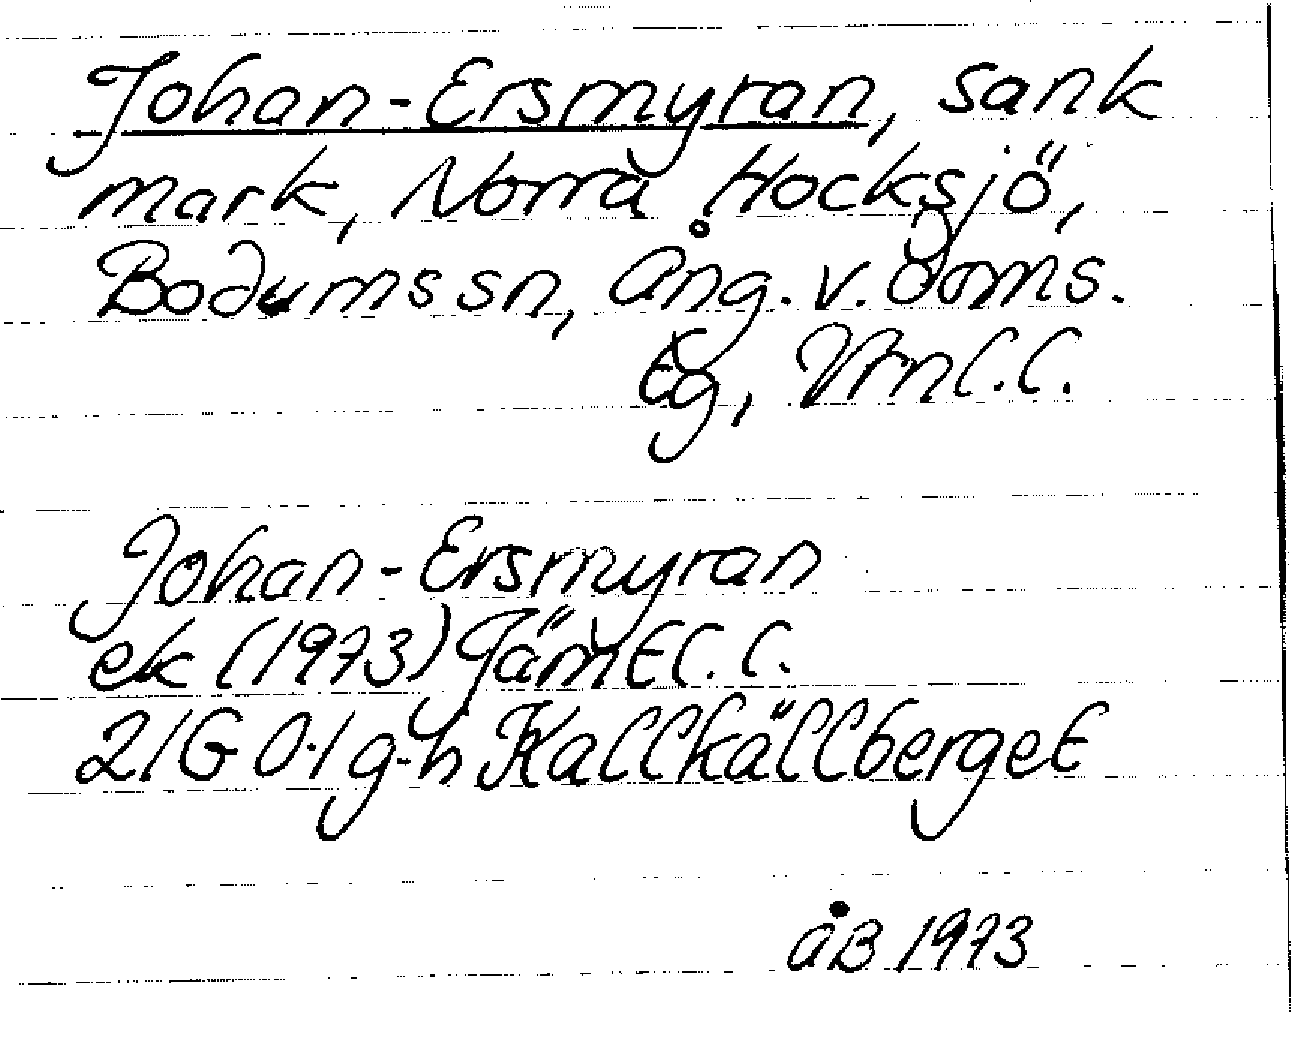 Johan-Ersmyran, sank
mark, Norra Hocksjö,
Bodums sn, Ång. v. Doms.
Eg, Vrnl.l.
Johan-Ersmyran
ek (1973) Jämtl.l.
21G 0-1 g-h Kallkällberget
åB 1973